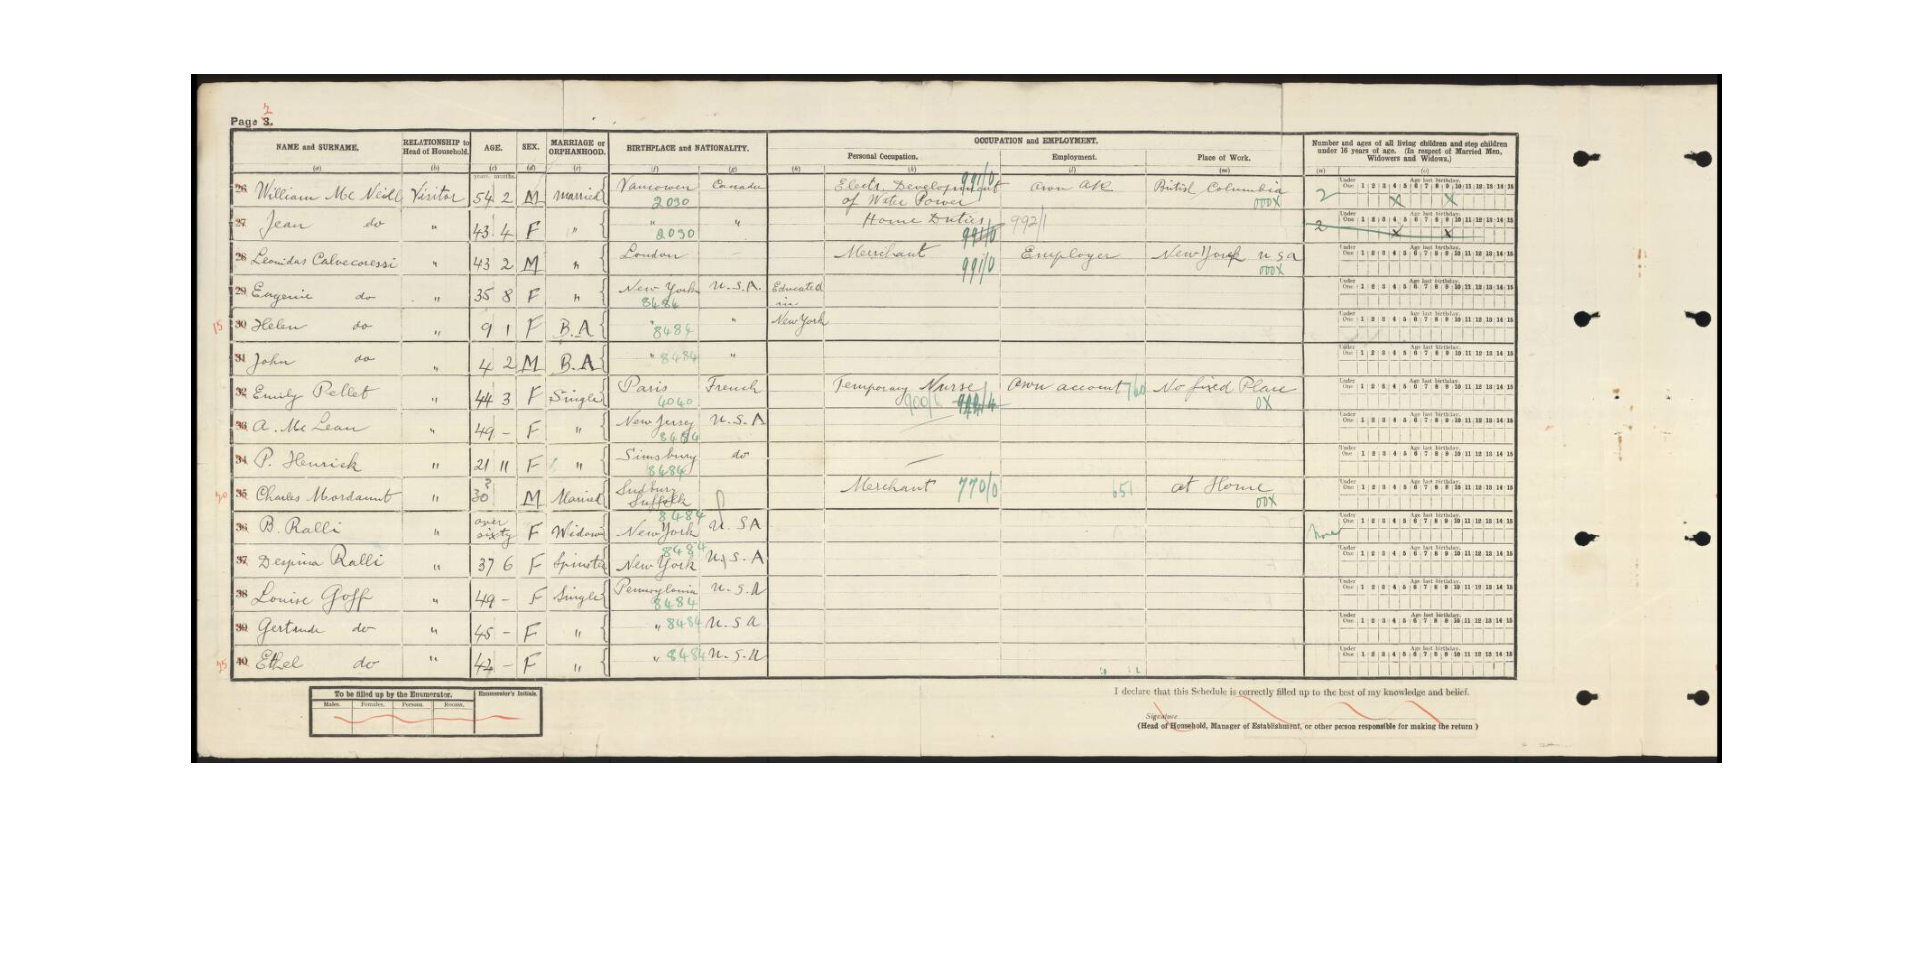 2
Page 3.
NAME and SURNAME. RELATIONSHIP to Head of Household. AGE. SEX. MARRIAGE or ORPHANHOOD. BIRTHPLACE and NATIONALITY. OCCUPATION and EMPLOYMENT. Number and ages of all living children and step children under 16 years of age. (In respect of Married Men, Widowers and Widows.)
Personal Occupation. Employment. Place of Work.
(a) (b) (c) (d) (e) (f) (g) (h) (k) (l) (m) (n) (o)
years months
26 William Mc Neill Visitor 54 2 M Married Vancouver 2030 Canada Electr. Development of Water Power 991/0 own a/c British Columbia 000X 2 X X
27 Jean do " 43 4 F " " 2030 " Home Duties 991/0 992/1 2 X X
28 Leonidas Calvocoressi " 43 2 M " London Merchant 991/0 Employer New York U S A 000X
29 Eugenie do " 35 8 F " New York 8484 U.S.A. Educated in
15 30 Helen do " 9 1 F B.A " 8484 " New York
31 John do " 4 2 M B.A " 8484 "
32 Emily Pellet " 44 3 F Single Paris 4040 French Temporary Nurse own account No fixed Place OX
33 A. Mc Lean " 49 - F " New Jersey 8484 U.S.A
34 P. Henrick " 21 11 F " Simsbury 8484 do
20 35 Charles Mordaunt " 30 ? M Married Sudbury Suffolk Merchant 770/0 651 at Home 00X
36 B. Ralli " over sixty F Widow 8484 New York U.SA None
37 Despina Ralli " 37 6 F Spinster 8484 New York U.S.A
38 Louise Goff " 49 - F Single Pennsylvania 8484 U.S.A
39 Gertrude do " 45 - F " " 8484 U.S A
25 40 Ethel do " 42 - F " " 8484 U.S.A
Under One 1 2 3 4 5 6 7 8 9 10 11 12 13 14 15
Age last birthday.
To be filled up by the Enumerator. Enumerator's Initials.
Males. Females. Persons. Rooms.
I declare that this Schedule is correctly filled up to the best of my knowledge and belief.
Signature
(Head of Household, Manager of Establishment, or other person responsible for making the return )